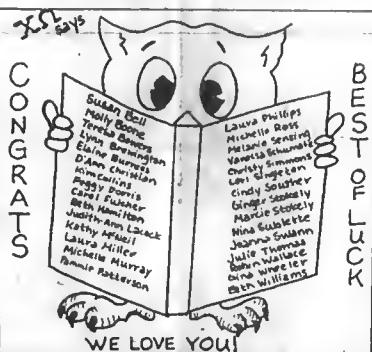 ΧΩ says
CONGRATS
Susan Bell
Molly Boone
Teresa Bowers
Lynn Brewington
Elaine Burnes
D'Ann Christian
Kim Collins
Peggy Dorris
Carol Fulcher
Beth Hamilton
Judith-Ann Lacock
Kathy McNeil
Laura Miller
Michelle Murray
Pammie Patterson
Laura Phillips
Michelle Ross
Melanie
Vanessa Schumate
Christy Simmons
Lori Singleton
Cindy
Ginger Stokely
Marcie Stokely
Nina Sublette
Jeanna Swann
Julie Thomas
Robin Wallace
Dina Wheeler
Beth Williams
BEST OF LUCK
WE LOVE YOU!